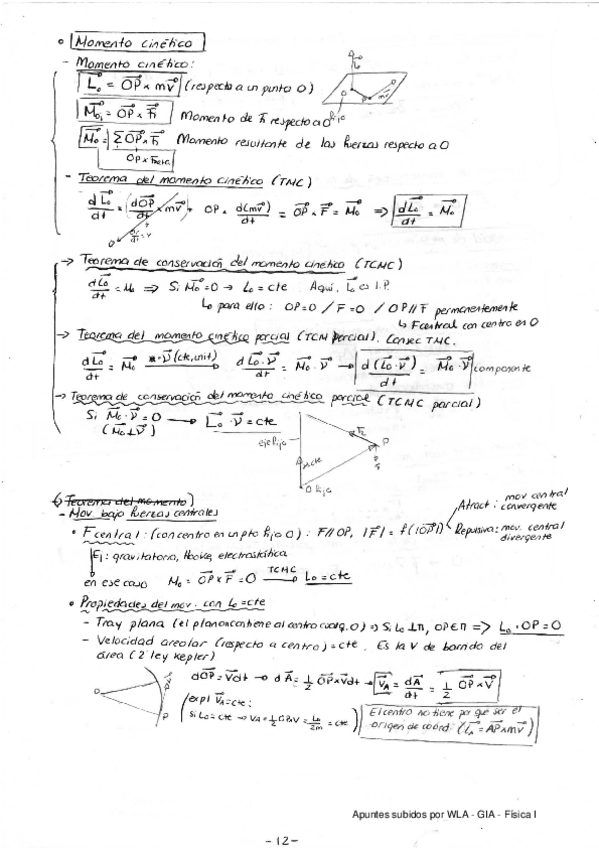 ° Momento cinético
- Momento cinético:
L⃗₀ = OP⃗ × mv⃗ (respecto a un punto O)
M⃗₀ᵢ = OP⃗ × F⃗ᵢ Momento de Fᵢ respecto a O
fijo
M⃗₀ = Σ OP⃗ × F⃗ᵢ Momento resultante de las fuerzas respecto a O
- Teorema del momento cinético (TMC)
dL⃗₀/dt = dOP⃗/dt × mv⃗ + OP × d(mv⃗)/dt = OP⃗ × F⃗ = M⃗₀ ⇒ dL⃗₀/dt = M⃗₀
→ Teorema de conservación del momento cinético (TCMC)
dL⃗₀/dt = M₀ ⇒ Si M⃗₀ = 0 → L₀ = cte Aquí, L⃗₀ es I.P.
↳ para ello: OP = 0 / F = 0 / OP // F⃗ permanentemente
↳ Fcentral con centro en O
→ Teorema del momento cinético parcial (TCM parcial). Consec TMC.
dL⃗₀/dt = M⃗₀ → dL⃗₀·ν⃗/dt = M⃗₀·ν⃗ → d(L⃗₀·ν⃗)/dt = M⃗₀·ν⃗ componente
→ Teorema de conservación del momento cinético parcial (TCMC parcial)
Si M⃗₀·ν⃗ = 0 → L⃗₀·ν⃗ = cte
(M⃗₀ ⊥ ν⃗)
eje fijo
P
O fijo
Teorema del momento)
- Mov bajo fuerzas centrales
Atract: mov central convergente
• Fcentral: (con centro en un pto fijo O): F // OP, |F⃗| = f(|OP⃗|) Repulsiva: mov. central divergente
Ej: gravitatoria, Hooke, electrostática
en ese caso M₀ = OP⃗ × F⃗ = 0 TCMC → L₀ = cte
• Propiedades del mov. con L₀ = cte
- Tray plana (el plano contiene al centro O) ⇒ Si L₀ ⊥ π, OP ∈ π ⇒ L₀ · OP = 0
- Velocidad areolar (respecto a centro) = cte. Es la V de barrido del
área (2ª ley kepler)
dOP⃗ = V⃗dt → dA⃗ = 1/2 OP⃗ × V⃗dt → V⃗_A = dA⃗/dt = 1/2 OP⃗ × V⃗
O
P
expl V⃗_A = cte:
Si L₀ = cte → V_A = 1/2 OP × V = L₀/2m = cte
El centro no tiene por que ser el
origen de coord (L⃗_A = AP⃗ × mv⃗)
Apuntes subidos por WLA - GIA - Física I
-12-